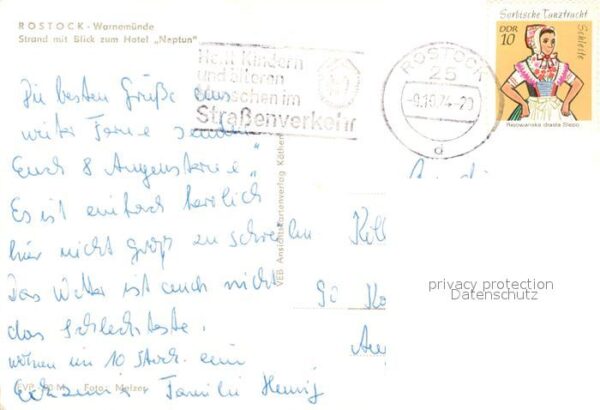 ROSTOCK - Warnemünde
Strand mit Blick zum Hotel „Neptun"
Helft Kindern
und älteren
Menschen im
Straßenverkehr
ROSTOCK
25
-9.10.74-20
d
Sorbische Tanztracht
Schleife
DDR
10
Die besten Grüße aus
weiter Ferne senden
Euch 8 Augensterne"
Es ist einfach herrlich
hier nicht groß zu schreiben
Das Wetter ist auch nicht
das Schlechteste.
wohnen im 10 Stock. ein
Familie Hennig
90
VEB Ansichtskartenverlag Köthen
EVP Foto: Melzer
privacy protection
Datenschutz